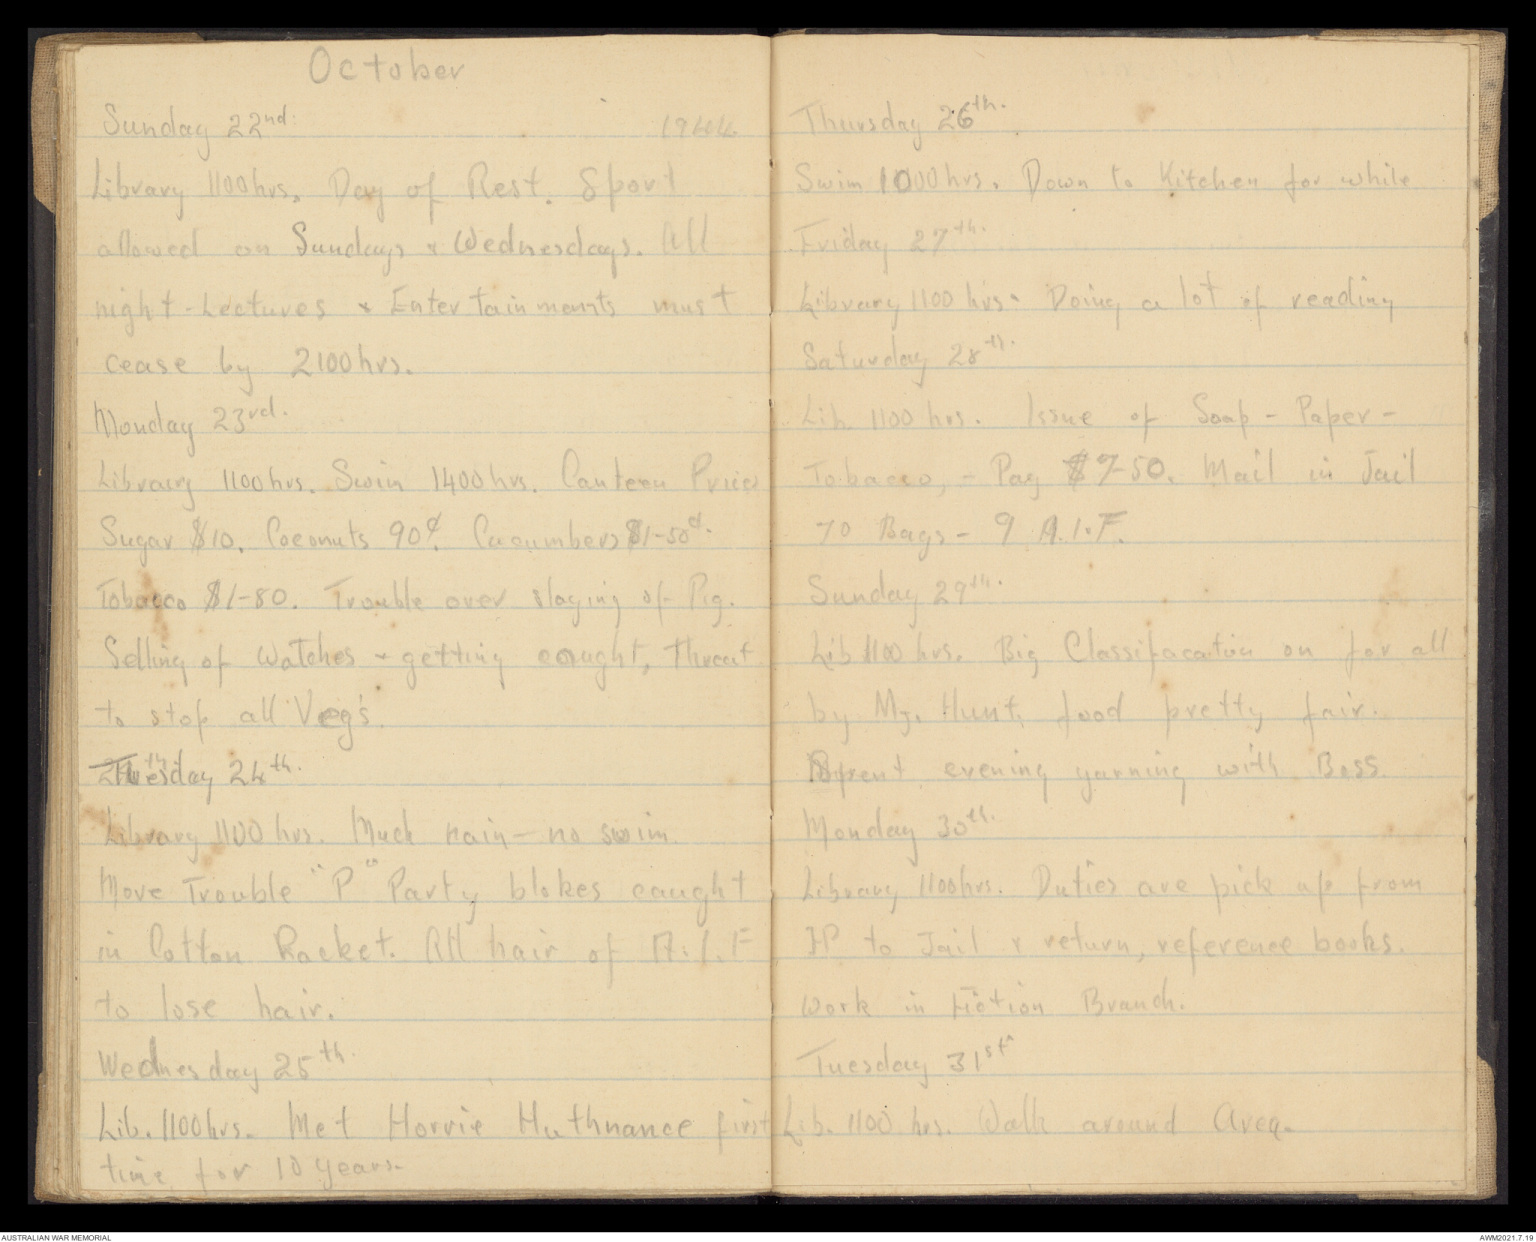 October
Sunday 22nd. 1944.
Library 1100 hrs. Day of Rest. Sport
allowed on Sundays & Wednesdays. All
night-Lectures & Entertainments must
cease by 2100 hrs.
Monday 23rd.
Library 1100 hrs. Swim 1400 hrs. Canteen Prices
Sugar $10. Coconuts 90¢. Cucumbers $1-50¢.
Tobacco $1-80. Trouble over slaying of Pig.
Selling of Watches & getting caught, Threat
to stop all Veg's.
Tuesday 24th.
Library 1100 hrs. Much rain - no swim.
More Trouble "P" Party blokes caught
in Cotton Racket. All hair of A.I.F
to lose hair.
Wednesday 25th.
Lib. 1100 hrs. Met Horrie Huthnance first
time for 10 years.
Thursday 26th.
Swim 1000 hrs. Down to Kitchen for while
Friday 27th.
Library 1100 hrs. Doing a lot of reading
Saturday 28th.
Lib. 1100 hrs. Issue of Soap - Paper -
Tobacco, - Pay $7-50. Mail in Jail
70 Bags - 9 A.I.F.
Sunday 29th.
Lib 1100 hrs. Big Classifacation on for all
by Mj. Hunt, food pretty fair.
Spent evening yarning with Boss
Monday 30th.
Library 1100 hrs. Duties are pick up from
HP to Jail & return, reference books.
Work in Fiction Branch.
Tuesday 31st
Lib. 1100 hrs. Walk around Area.
AUSTRALIAN WAR MEMORIAL
AWM2021.7.19